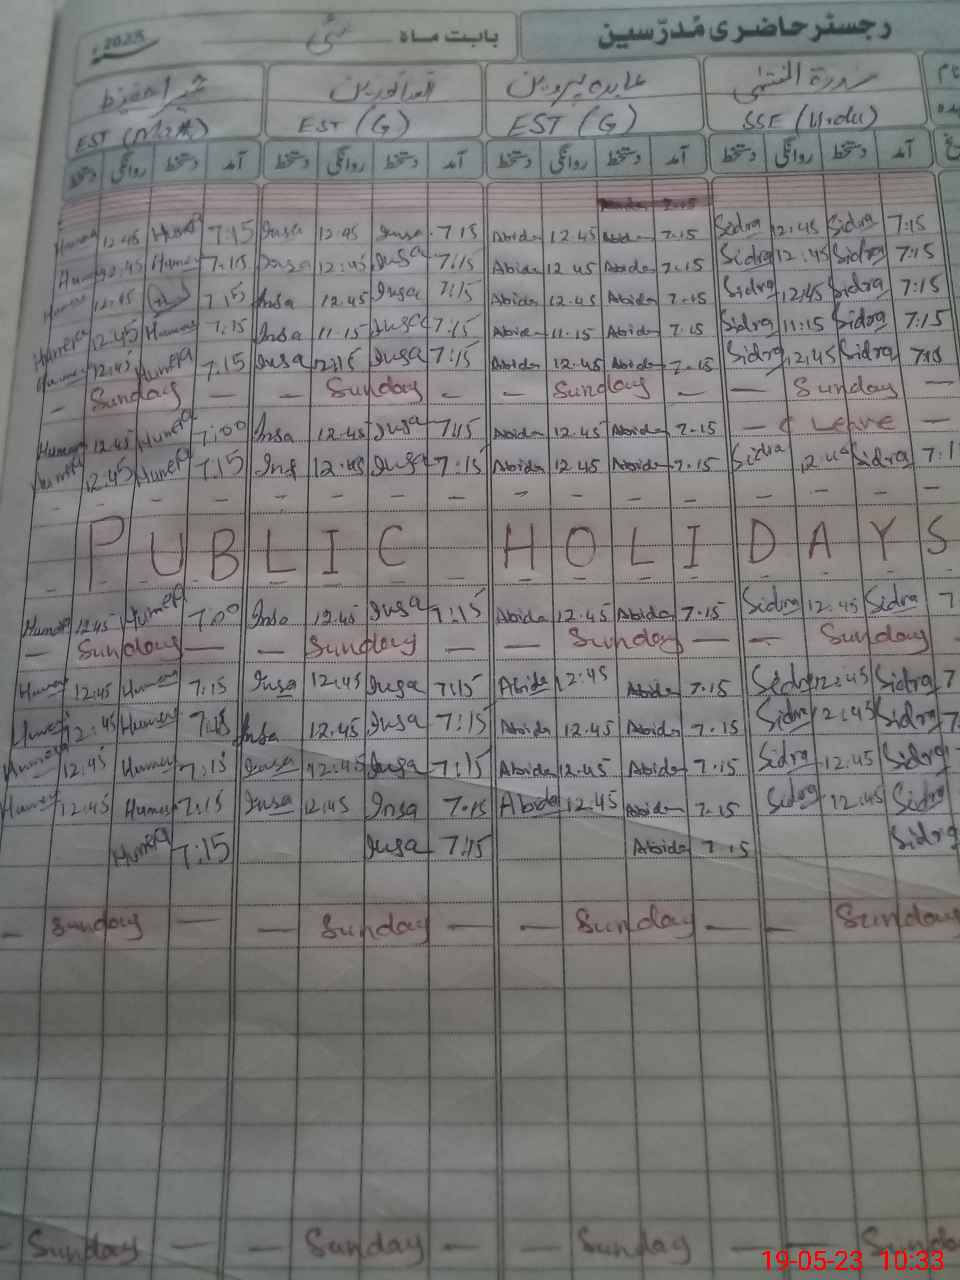 رجسٹر حاضری مُدرّسین بابت ماہ مئی 2023ء
سدرۃ المنتہیٰ عابدہ پروین
EST (G) EST (G) SSE (Urdu)
آمد دستخط روانگی دستخط آمد دستخط روانگی دستخط آمد دستخط روانگی دستخط آمد دستخط روانگی دستخط
Humera 12:45 Humera 7:15 Insa 12:45 Insa 7:15 Abida 12.45 Abida 7.15 Sidra 12:45 Sidra 7:15
Humera 12:45 Humera 7:15 Insa 12:45 Insa 7:15 Abida 12.45 Abida 7.15 Sidra 12:45 Sidra 7:15
Humera 12:45 7:15 Insa 12.45 Insa 7:15 Abida 12.45 Abida 7.15 Sidra 12:45 Sidra 7:15
Humera 12:45 Humera 7:15 Insa 11.15 Insa 7:15 Abida 11.15 Abida 7.15 Sidra 11:15 Sidra 7:15
Humera 12:45 Humera 7:15 Insa 12:15 Insa 7:15 Abida 12.45 Abida 7.15 Sidra 12:45 Sidra 7:15
– Sunday – – Sunday – – Sunday – – Sunday –
Humera 12:45 Humera 7:00 Insa 12.45 Insa 7:15 Abida 12.45 Abida 7.15 – C Leave –
Humera 12:45 Humera 7:15 Insa 12:45 Insa 7:15 Abida 12.45 Abida 7.15 Sidra 12:45 Sidra 7:1
PUBLIC HOLIDAYS
Humera 12:45 Humera 7:00 Insa 12:45 Insa 7:15 Abida 12.45 Abida 7.15 Sidra 12:45 Sidra 7
– Sunday – – Sunday – – Sunday – – Sunday
Humera 12:45 Humera 7:15 Insa 12:45 Insa 7:15 Abida 12:45 Abida 7.15 Sidra 12:45 Sidra 7
Humera 12:45 Humera 7:15 Insa 12.45 Insa 7:15 Abida 12.45 Abida 7.15 Sidra 12:45 Sidra 7
Humera 12:45 Humera 7:15 Insa 12:45 Insa 7:15 Abida 12.45 Abida 7.15 Sidra 12:45 Sidra
Humera 12:45 Humera 7:15 Insa 12:45 Insa 7:15 Abida 12:45 Abida 7.15 Sidra 12:45 Sidra
Humera 7:15 Insa 7:15 Abida 7.15 Sidra
– Sunday – – Sunday – – Sunday – – Sunday
– Sunday – – Sunday – – Sunday – – Sunday
19-05-23 10:33